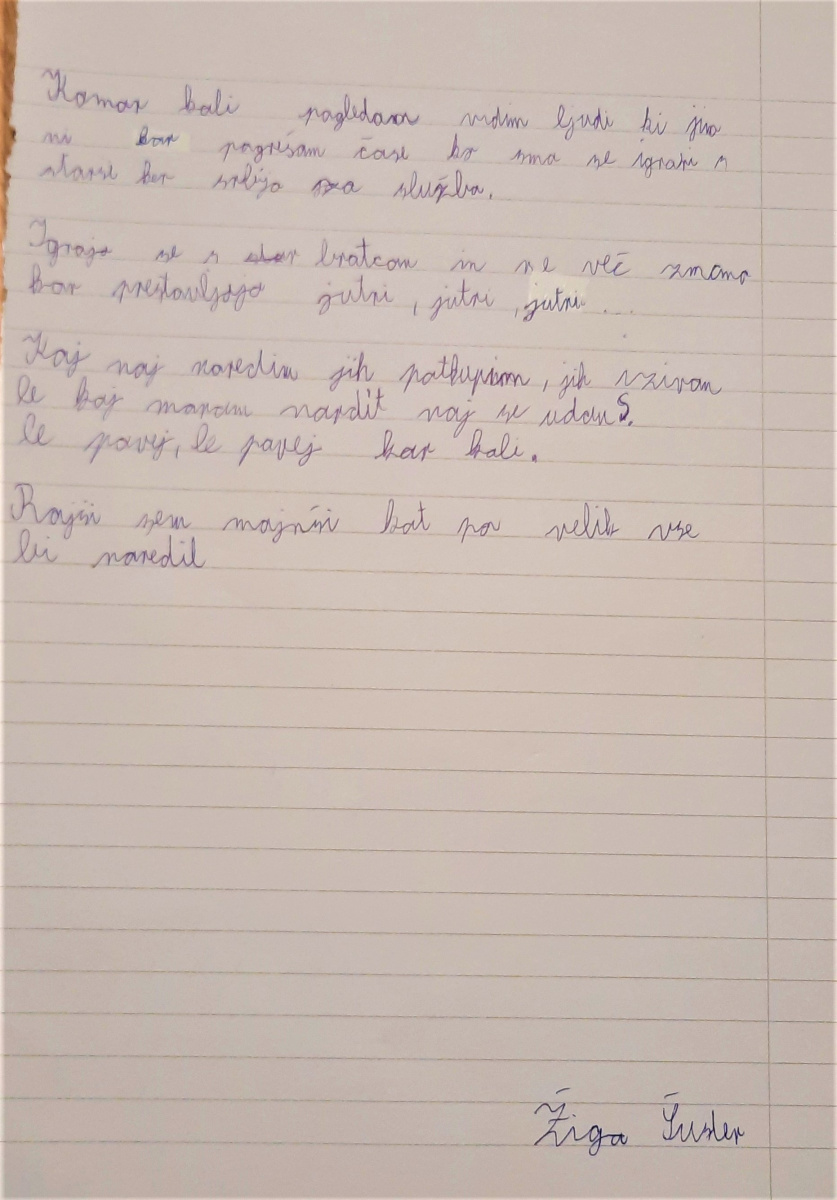 Kamor koli pogledam vidim ljudi ki jim
ni kar pogrešam čase ko smo se igrali s
starši ker srbijo za služba.
Igrajo se s bratcom in ne več zmano
kar prestavljajo jutri, jutri, jutri...
Kaj naj naredim jih potkupim, jih vzivam
le kaj moram nardit naj se udam?
le povej, le povej kar koli.
Rajši sem majniši kot pa velik vse
bi naredil
Žiga Šuster